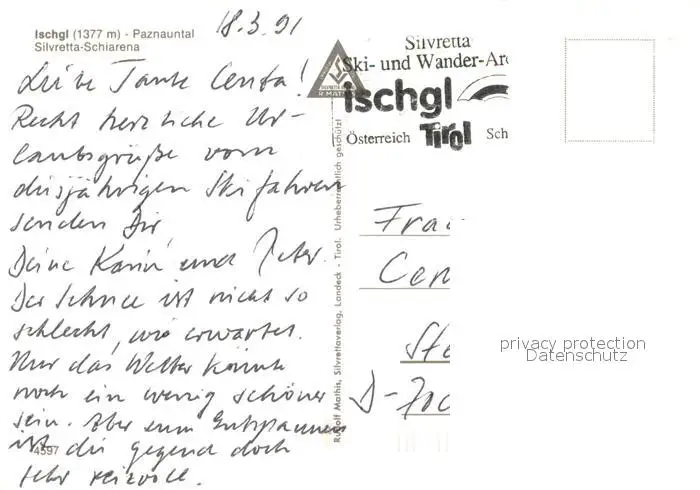 Ischgl (1377 m) - Paznauntal
Silvretta-Schiarena
18.3.91
Liebe Tante Centa!
Recht herzliche Ur-
laubsgrüße vom
diesjährigen Skifahren
senden Dir
Deine Karin und Peter.
Der Schnee ist nicht so
schlecht, wie erwartet.
Nur das Wetter könnte
noch ein wenig schöner
sein. Aber zum Entspannen
ist die Gegend doch
sehr reizvoll.
4597
Rudolf Mathis, Silvrettaverlag, Landeck - Tirol. Urheberrechtlich geschützt
R. MATHIS
Silvretta
Ski- und Wander-Are
ischgl
6
Österreich Tirol Sch
Frau
Cen
Ste
D-
privacy protection
Datenschutz